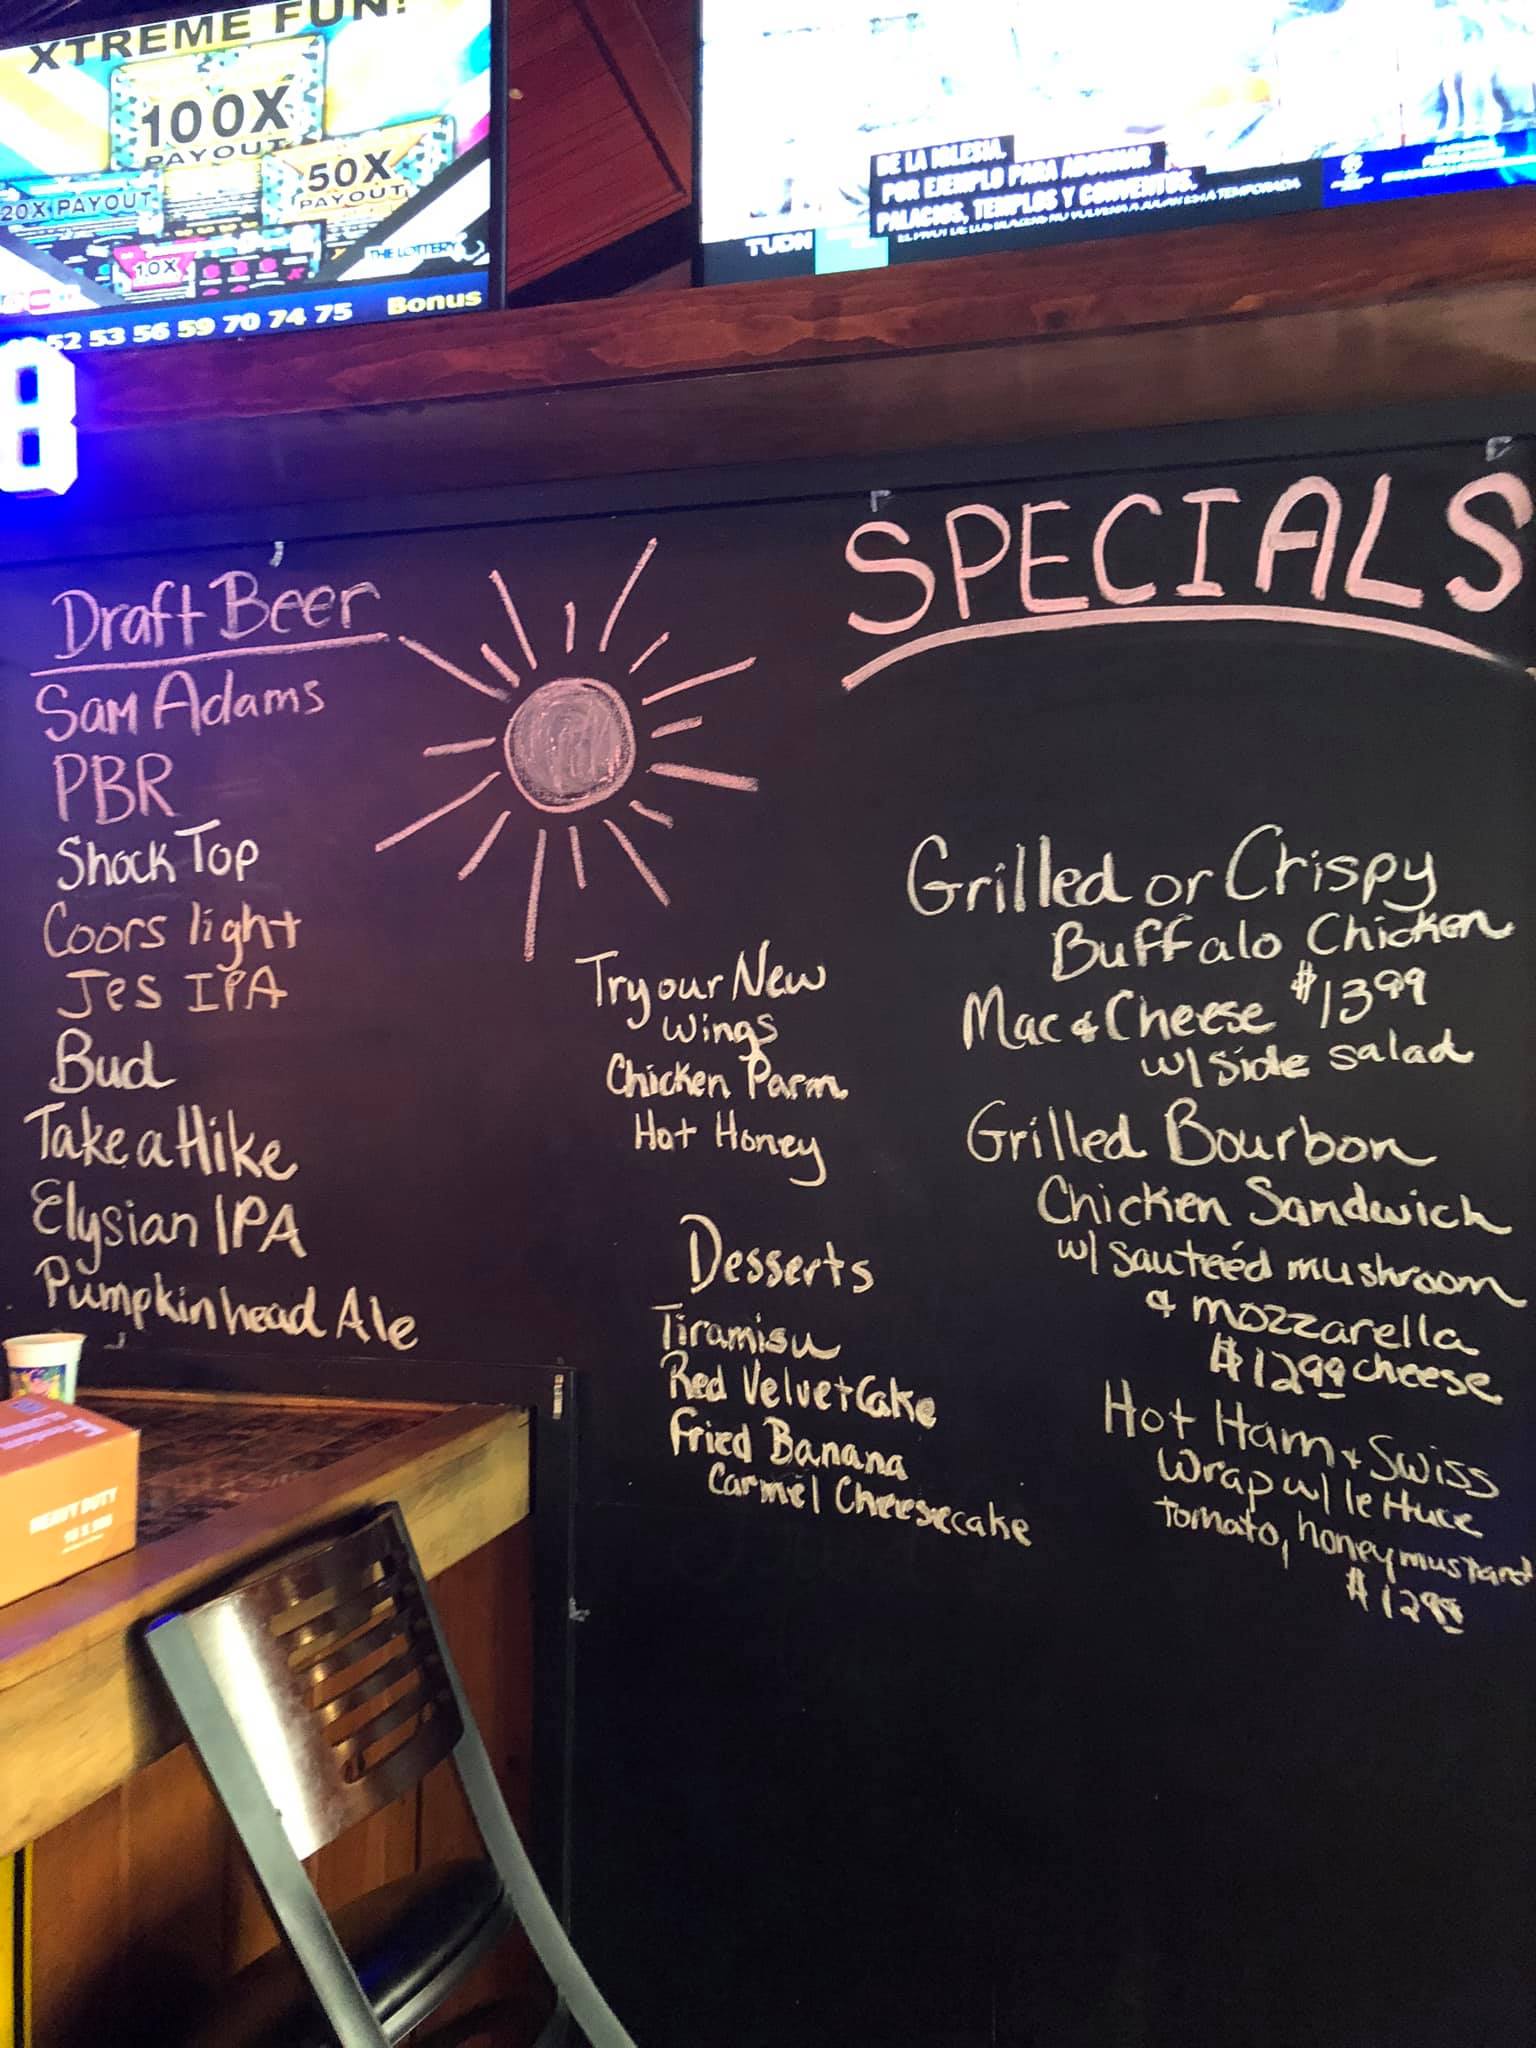 XTREME FUN!
100X
PAYOUT
50X
PAYOUT
20X PAYOUT
10X
THE LOTTERY
52 53 56 59 70 74 75 Bonus
DE LA IGLESIA.
POR EJEMPLO PARA ADORNAR
PALACIOS, TEMPLOS Y CONVENTOS.
TUDN
8
SPECIALS
Draft Beer
Sam Adams
PBR
Shock Top
Coors light
Jes IPA
Bud
Take a Hike
Elysian IPA
Pumpkinhead Ale
Try our New
Wings
Chicken Parm
Hot Honey
Desserts
Tiramisu
Red Velvet Cake
Fried Banana
Carmel Cheesecake
Grilled or Crispy
Buffalo Chicken
Mac & Cheese $13.99
w/ side salad
Grilled Bourbon
Chicken Sandwich
w/ sauteéd mushroom
& mozzarella
$12.99 cheese
Hot Ham & Swiss
Wrap w/ lettuce
tomato, honey mustard
$12.99
HEAVY DUTY